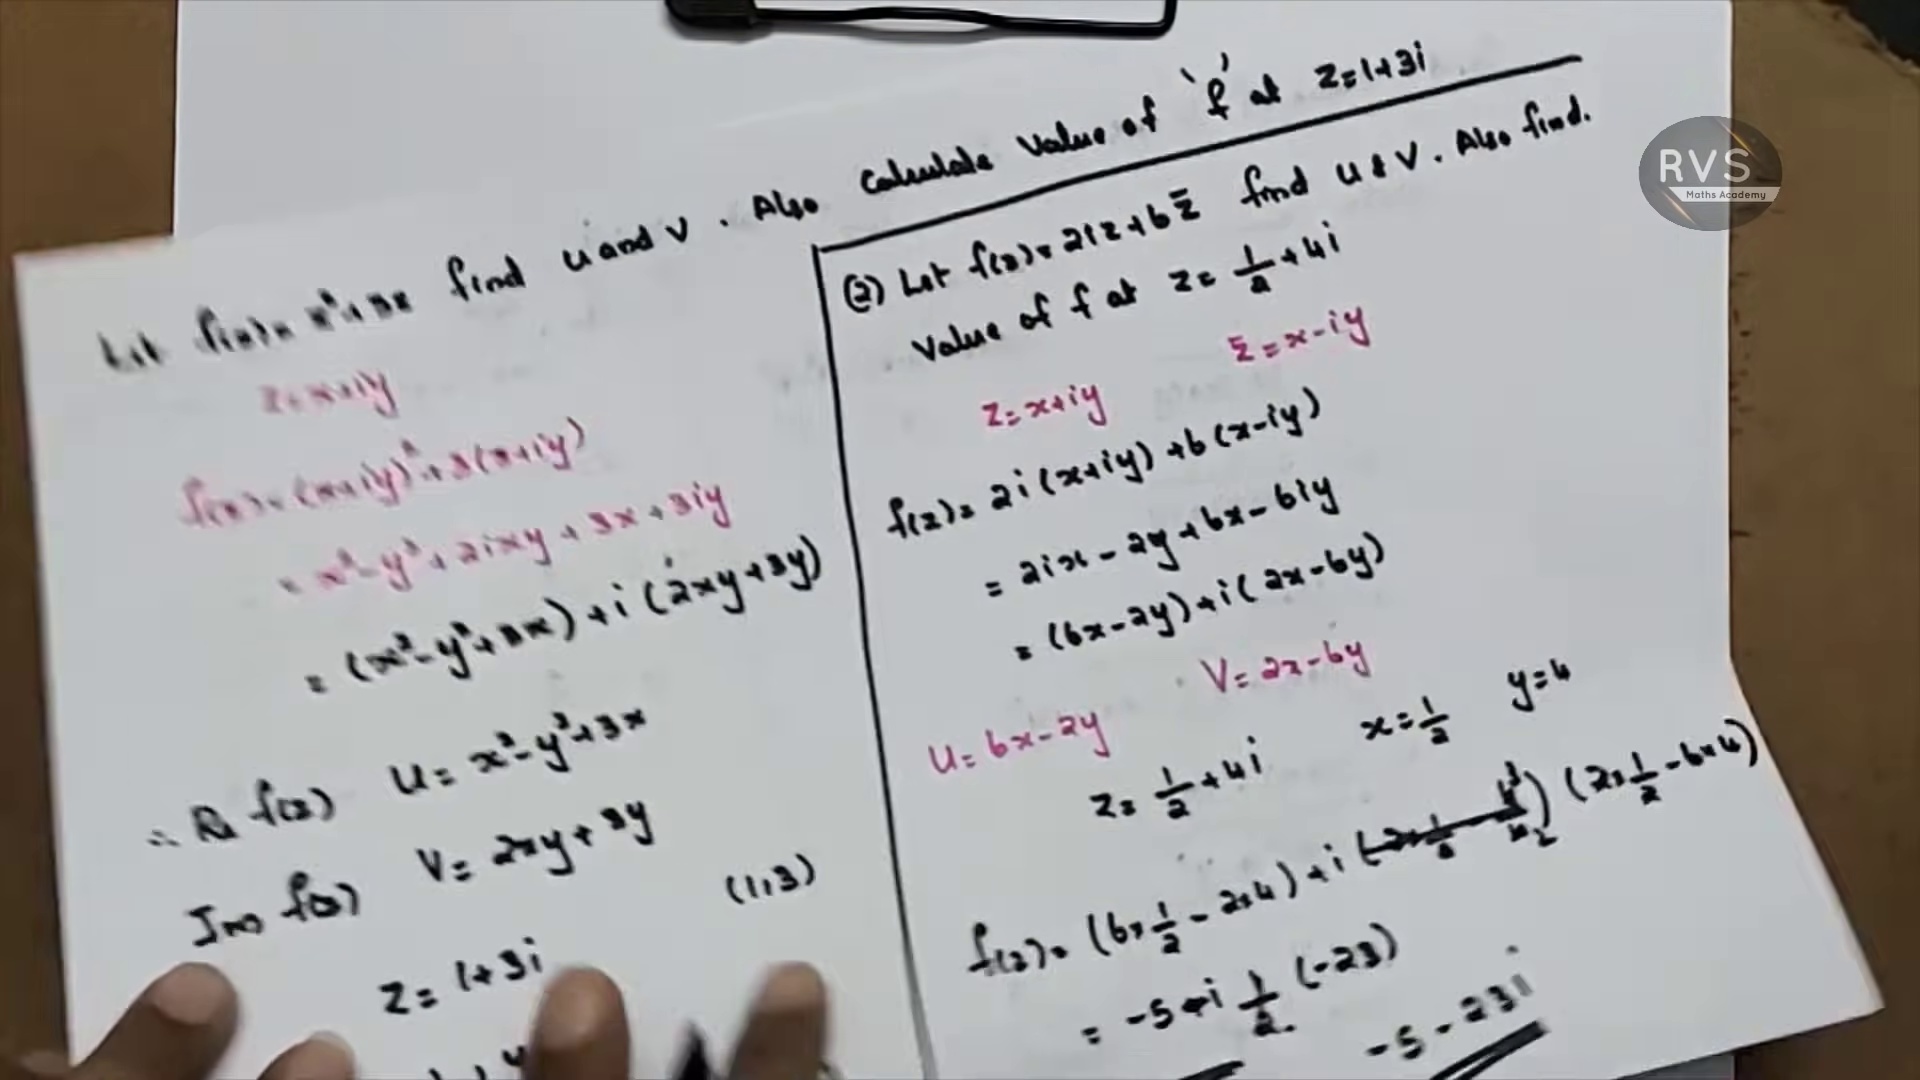 Let f(z) = z² + 3z find u and v. Also calculate value of 'f' at z=1+3i
z=x+iy
f(z) = (x+iy)²+3(x+iy)
= x²-y²+2ixy+3x+3iy
= (x²-y²+3x)+i(2xy+3y)
∴ Re f(z) u= x²-y²+3x
Im f(z) v= 2xy+3y
z= 1+3i (1,3)
(2) Let f(z)= 2iz+6z̄ find u & v. Also find.
Value of f at z= 1/2+4i
z=x+iy z̄=x-iy
f(z)= 2i(x+iy)+6(x-iy)
= 2ix-2y+6x-6iy
= (6x-2y)+i(2x-6y)
u= 6x-2y v= 2x-6y
z= 1/2+4i x=1/2 y=4
f(z)= (6×1/2-2×4)+i (2×1/2-6×4)
= -5+i 1/2 (-23)
-5-23i
RVS
Maths Academy